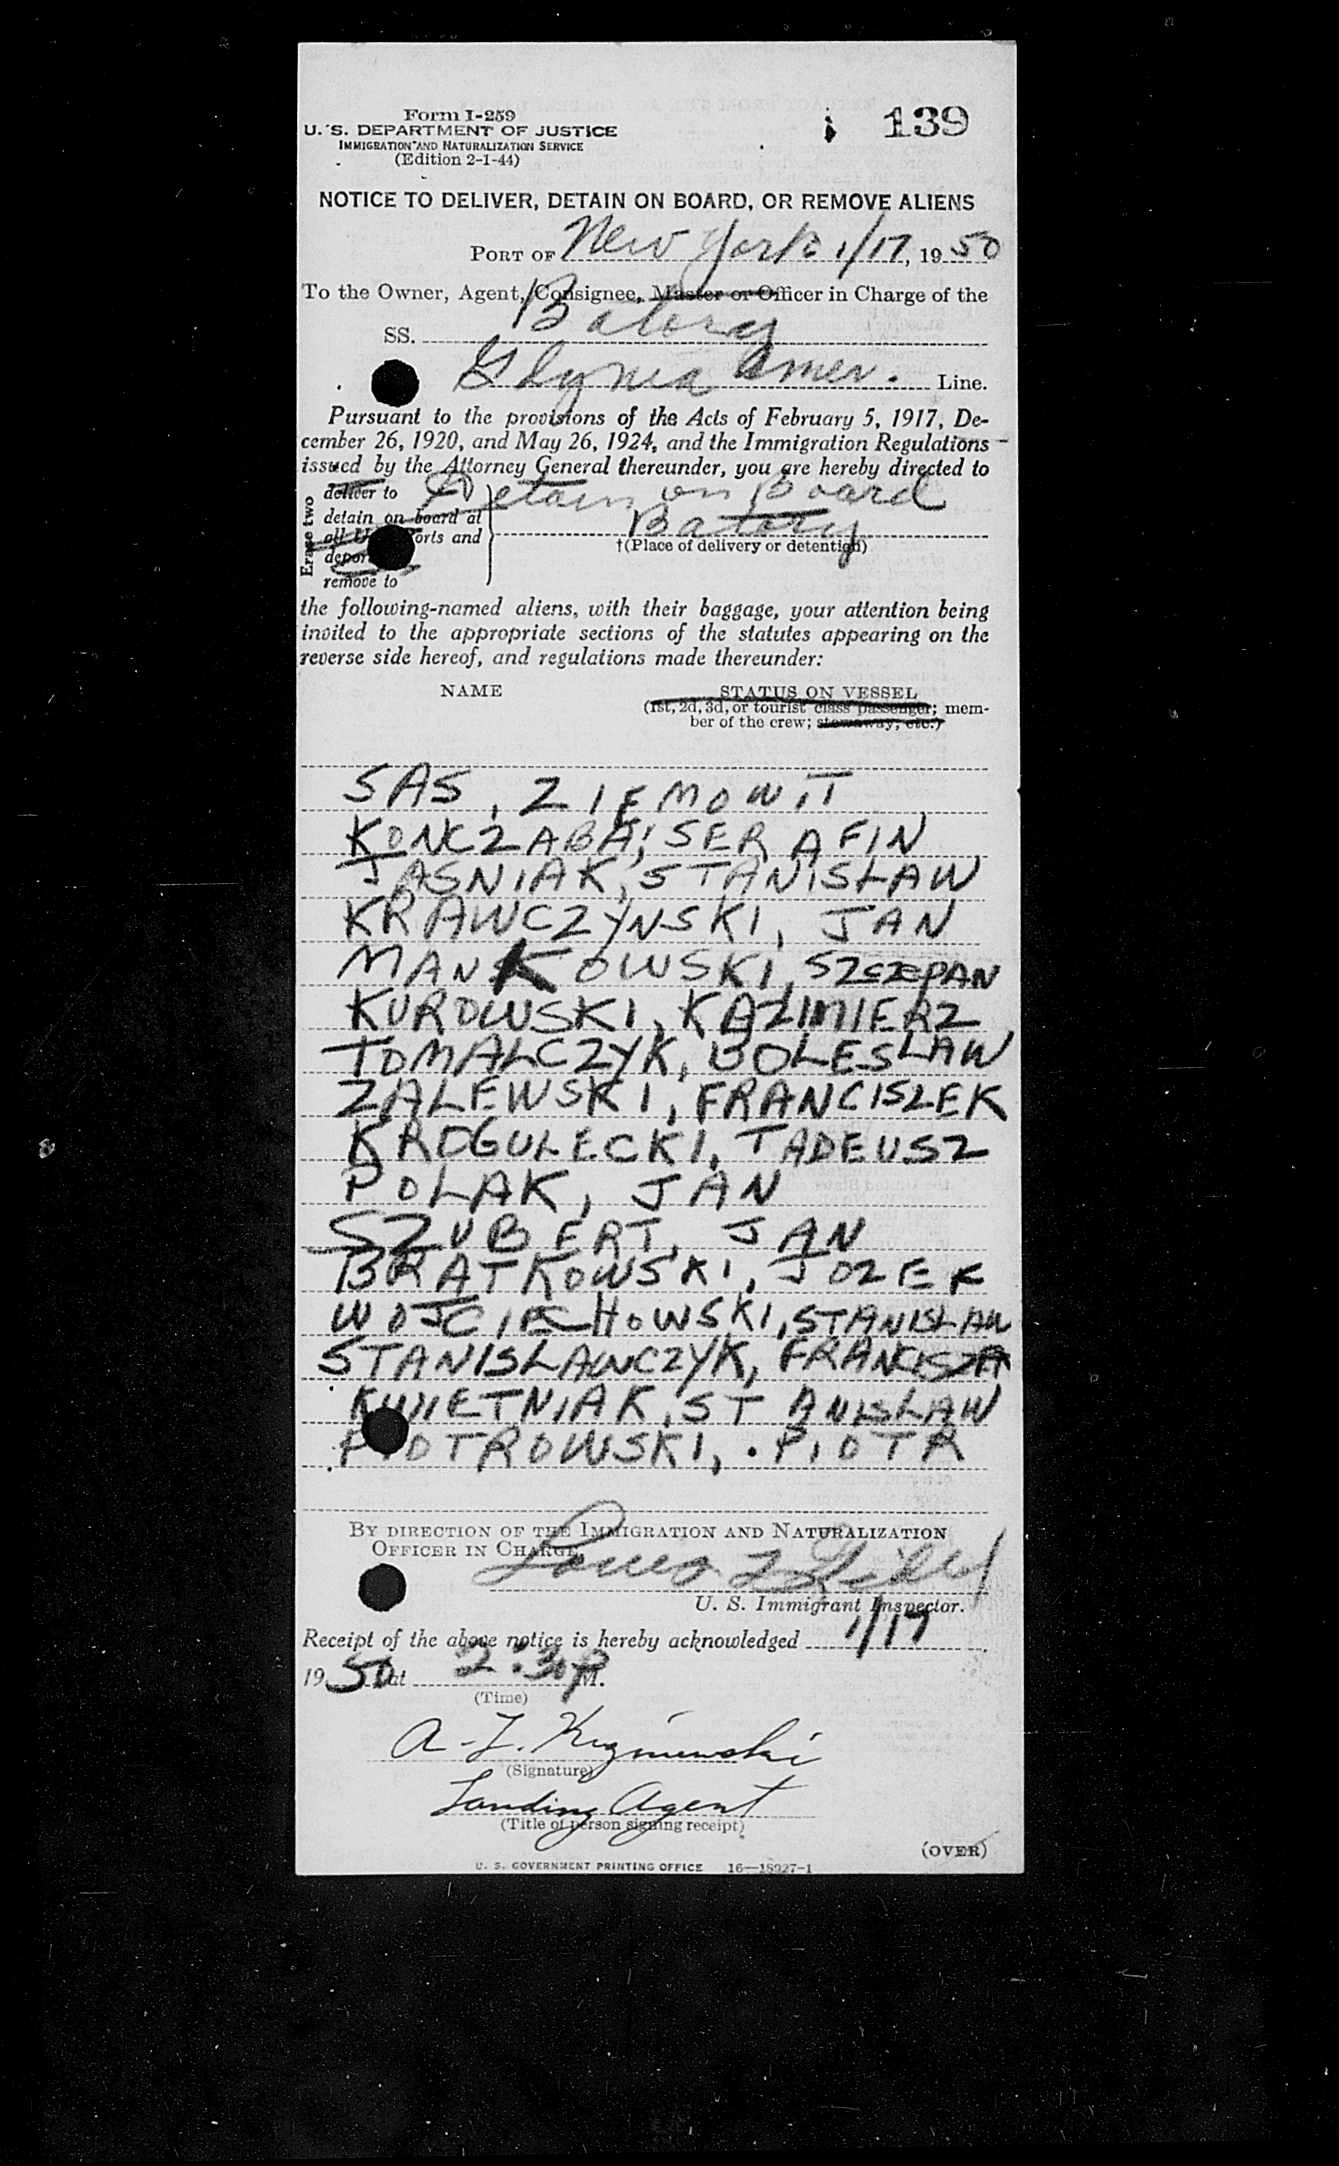 Form I-259
139
U. S. DEPARTMENT OF JUSTICE
IMMIGRATION AND NATURALIZATION SERVICE
(Edition 2-1-44)
NOTICE TO DELIVER, DETAIN ON BOARD, OR REMOVE ALIENS
PORT OF New York 1/17, 1950
To the Owner, Agent, Consignee, Master or Officer in Charge of the
SS. Batory
Gdynia Amer. Line.
Pursuant to the provisions of the Acts of February 5, 1917, De-
cember 26, 1920, and May 26, 1924, and the Immigration Regulations
issued by the Attorney General thereunder, you are hereby directed to
Erase two
deliver to
detain on board at
all U. ports and
deport
remove to
Detain on Board
Batory
†(Place of delivery or detention)
the following-named aliens, with their baggage, your attention being
invited to the appropriate sections of the statutes appearing on the
reverse side hereof, and regulations made thereunder:
NAME STATUS ON VESSEL
(1st, 2d, 3d, or tourist class passenger; mem-
ber of the crew; stowaway, etc.)
SAS, ZIEMOWIT
KONCZABA, SERAFIN
JASNIAK, STANISLAW
KRAWCZYNSKI, JAN
MANKOWSKI, SZCZEPAN
KUROWSKI, KAZIMIERZ
TOMALCZYK, BOLESLAW
ZALEWSKI, FRANCISZEK
KROGULECKI, TADEUSZ
POLAK, JAN
SZUBERT, JAN
BRATKOWSKI, JOZEF
WOJCIECHOWSKI, STANISLAW
STANISLAWCZYK,
KWIETNIAK, STANISLAW
PIOTROWSKI, PIOTR
BY DIRECTION OF THE IMMIGRATION AND NATURALIZATION
OFFICER IN CHARGE
U. S. Immigrant Inspector.
Receipt of the above notice is hereby acknowledged 1/17
1950 at 2:30 P M.
(Time)
A. J.
(Signature)
Landing Agent
(Title of person signing receipt)
(OVER)
U. S. GOVERNMENT PRINTING OFFICE 16—18927-1